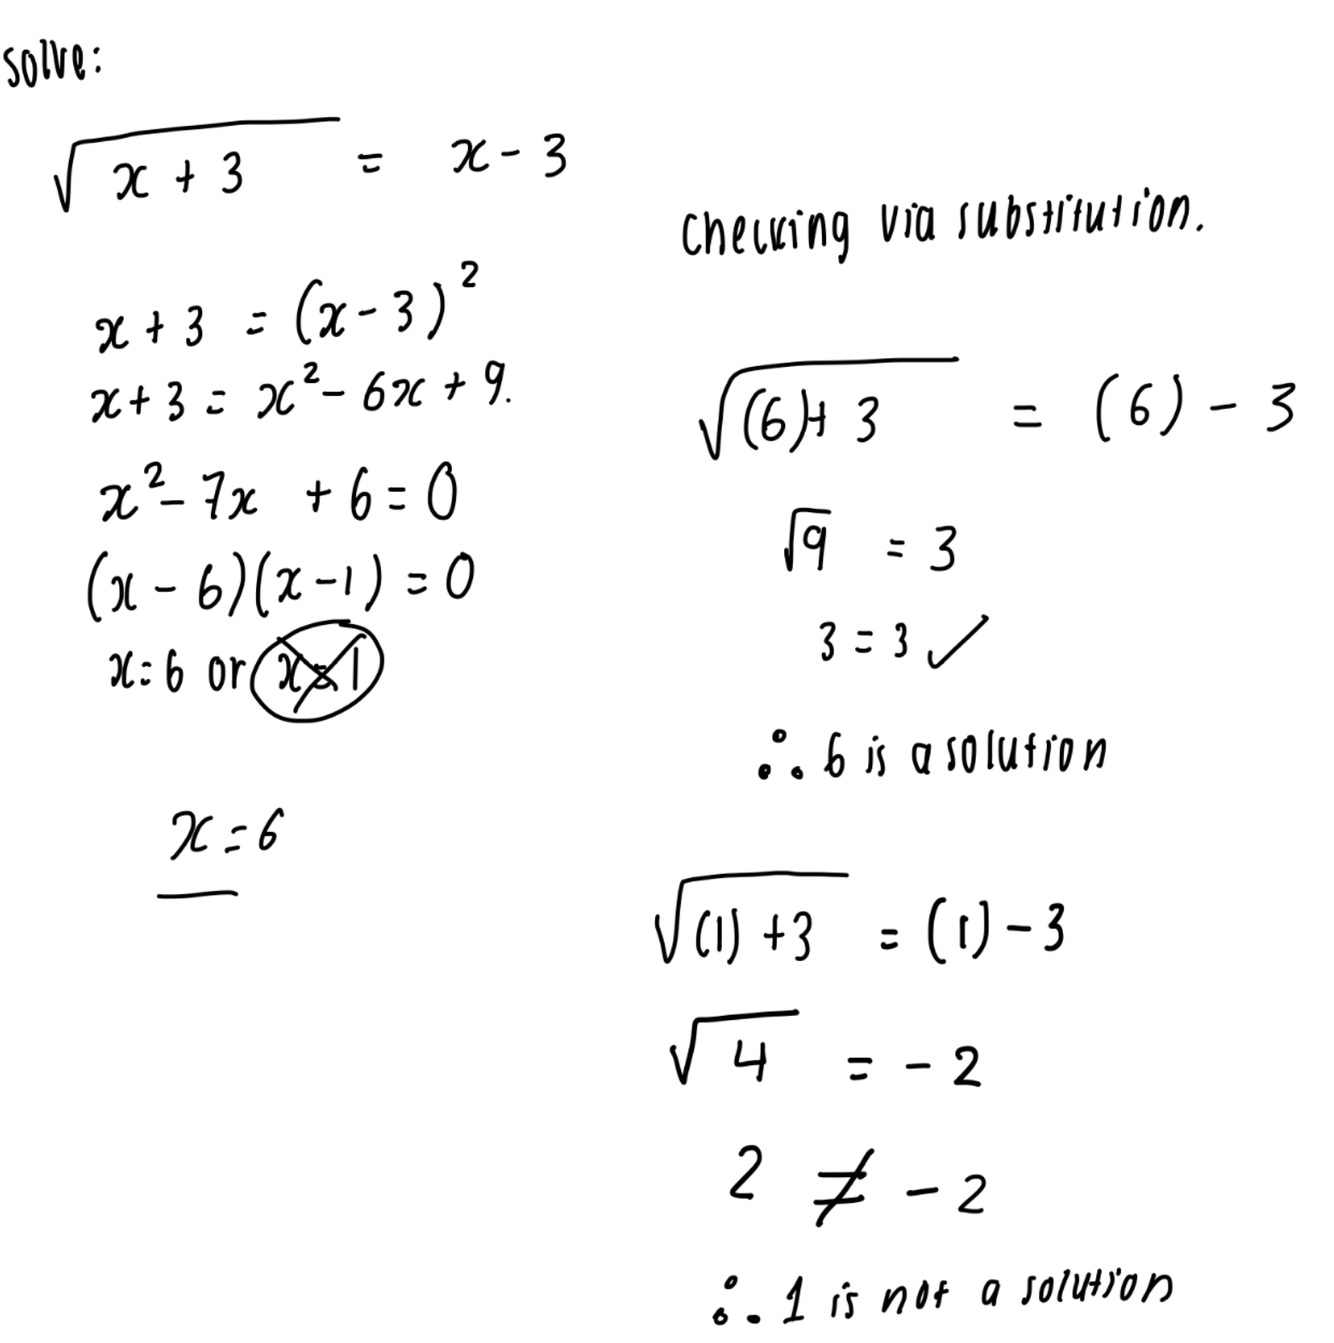 solve:
√(x + 3) = x - 3
x + 3 = (x - 3)²
x + 3 = x² - 6x + 9.
x² - 7x + 6 = 0
(x - 6)(x - 1) = 0
x = 6 or x = 1
x = 6
Checking via substitution.
√((6) + 3) = (6) - 3
√9 = 3
3 = 3 ✓
∴ 6 is a solution
√((1) + 3) = (1) - 3
√4 = - 2
2 ≠ - 2
∴ 1 is not a solution